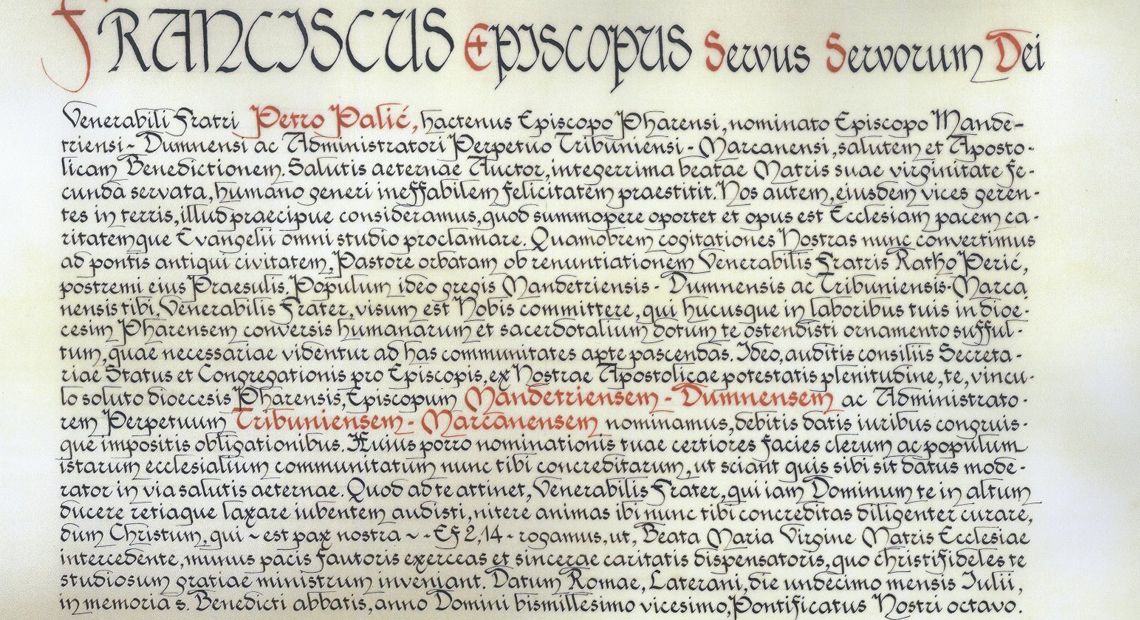 Franciscus Episcopus Servus Servorum Dei
Venerabili Fratri Petro Palić, hactenus Episcopo Pharensi, nominato Episcopo Mande-
triensi - Dumnensi ac Administratori Perpetuo Tribuniensi - Marcanensi, salutem et Aposto-
licam Benedictionem. Salutis aeternae Auctor, integerrima beatae Matris suae virginitate fe-
cunda servata, humano generi ineffabilem felicitatem praestitit. Nos autem, eiusdem vices geren-
tes in terris, illud praecipue consideramus, quod summopere oportet et opus est Ecclesiam pacem ca-
ritatemque Evangelii omni studio proclamare. Quamobrem cogitationes Nostras nunc convertimus
ad pontis antiqui civitatem, Pastore orbatam ob renuntiationem Venerabilis Fratris Ratho Perić,
postremi eius Praesulis. Populum ideo gregis Mandetriensis - Dumnensis ac Tribuniensis-Marca
nensis tibi, Venerabilis Frater, visum est Nobis committere, qui hucusque in laboribus tuis in dioe-
cesim Pharensem conversis humanarum et sacerdotalium dotum te ostendisti ornamento sufful-
tum, quae necessariae videntur ad has communitates apte pascendas. Ideo, auditis consiliis Secreta-
riae Status et Congregationis pro Episcopis, ex Nostrae Apostolicae potestatis plenitudine, te, vincu-
lo soluto dioecesis Pharensis, Episcopum Mandetriensem - Dumnensem ac Administrato-
rem Perpetuum Tribuniensem - Marcanensem nominamus, debitis datis iuribus congruis-
que impositis obligationibus. Huius porro nominationis tuae certiores facies clerum ac populum
istarum ecclesialium communitatum nunc tibi concreditarum, ut sciant quis sibi sit datus mode-
rator in via salutis aeternae. Quod ad te attinet, Venerabilis Frater, qui iam Dominum te in altum
ducere retiaque laxare iubentem audisti, nitere animas ibi nunc tibi concreditas diligenter curare,
dum Christum, qui ~ est pax nostra ~ - Ef 2,14 - rogamus, ut, Beata Maria Virgine Matris Ecclesiae
intercedente, munus pacis fautoris exerceas et sincerae caritatis dispensatoris, quo christifideles te
studiosum gratiae ministrum inveniant. Datum Romae, Laterani, die undecimo mensis Iulii,
in memoria s. Benedicti abbatis, anno Domini bismillesimo vicesimo, Pontificatus Nostri octavo.